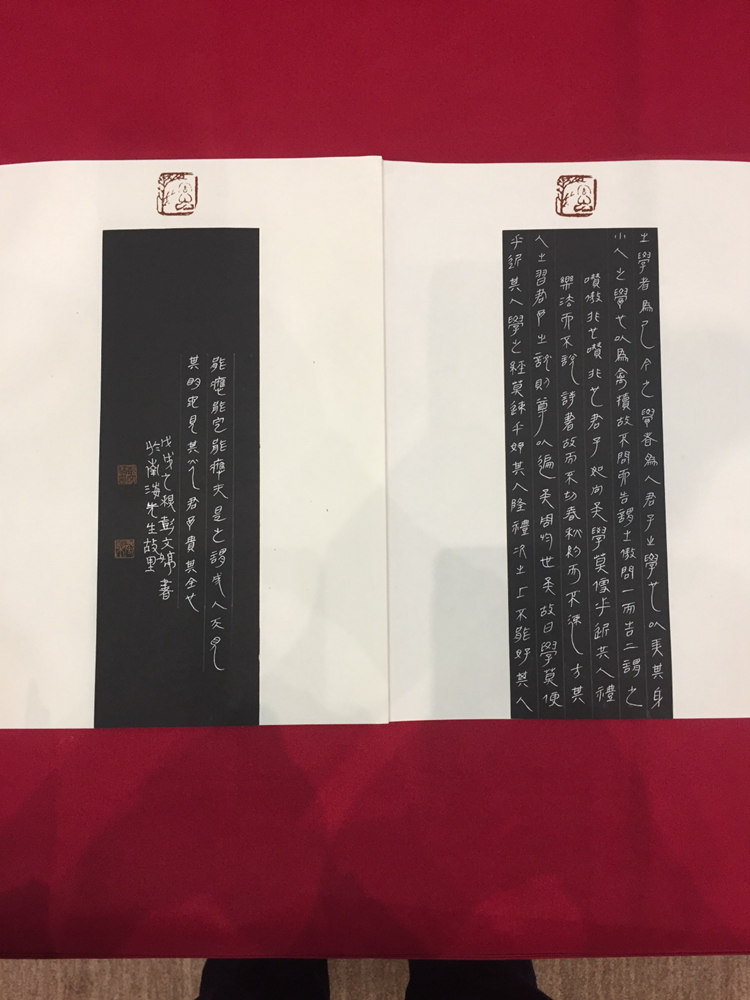 之學者為己今之學者為人君子之學也以美其身
小人之學也以為禽犢故不問而告謂之傲問一而告二謂之
囋傲非也囋非也君子如向矣學莫便乎近其人禮
樂法而不說詩書故而不切春秋約而不速方其
人之習君子之說則尊以遍矣周於世矣故曰學莫便
乎近其人學之經莫速乎好其人隆禮次之上不能好其人
能應能定能應夫是之謂成人天見
其明地見其光君子貴其全也
戊戌之穐彭文書
於南海先生故里